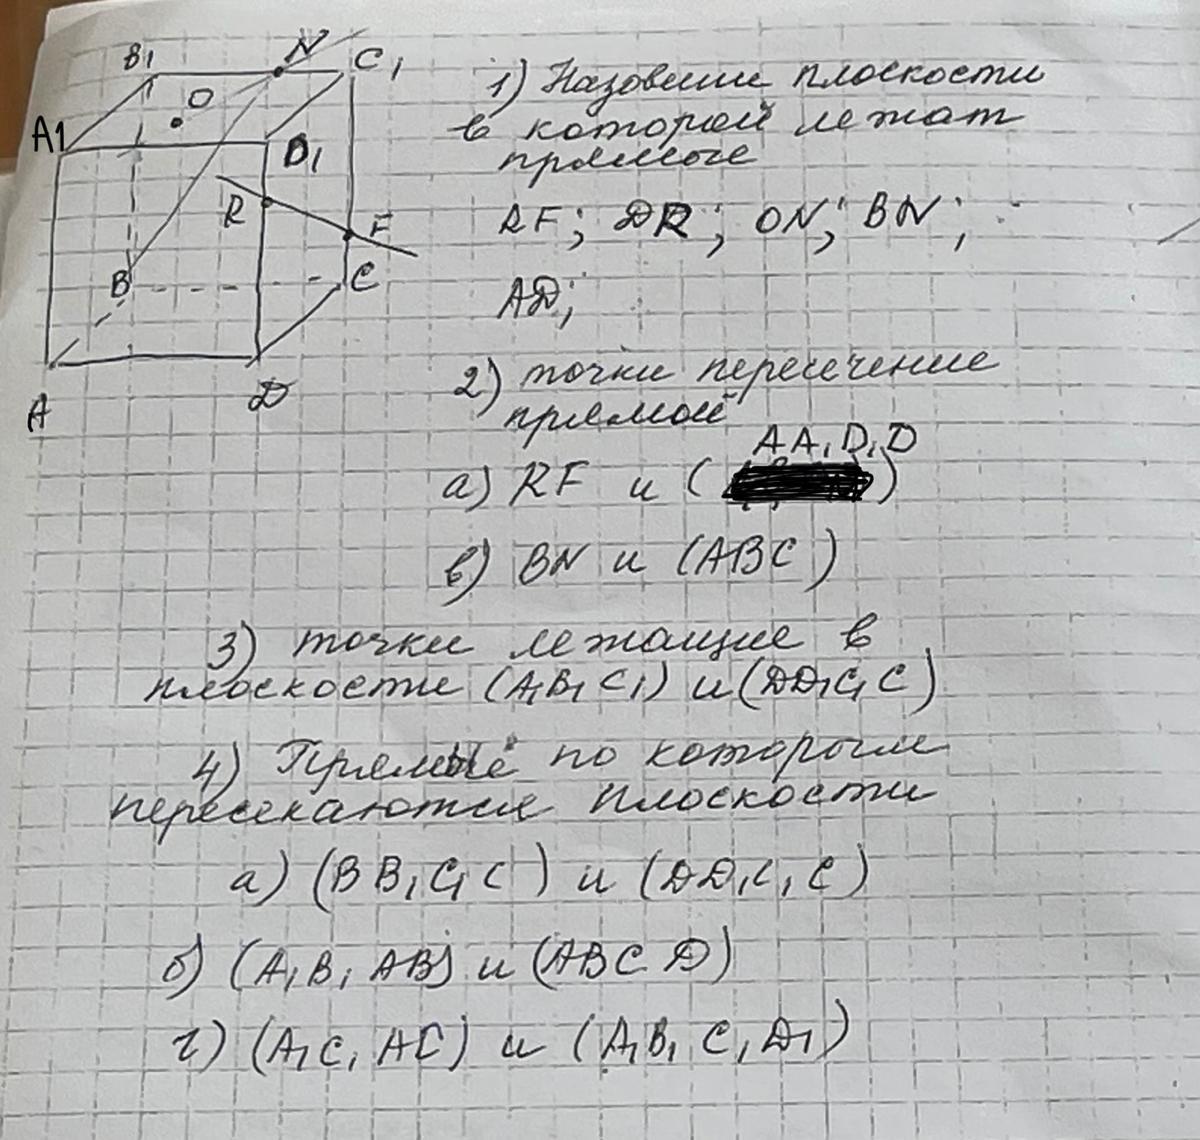 B1
N
C1
O
A1
D1
R
F
B
C
A
D
1) Назовите плоскости
в которой лежат
прямые
RF; DR; ON; BN;
AD;
2) точки пересечение
прямой
AA1D1D
а) RF и ( )
в) BN и (ABC)
3) точки лежащие в
плоскости (A1B1C1) и (DD1C1C)
4) Прямые по которым
пересекаются плоскости
а) (BB1C1C) и (DD1C1C)
б) (A1B1AB) и (ABCD)
г) (A1C1AC) и (A1B1C1D1)